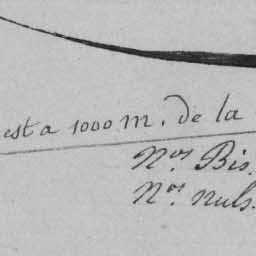 est a 1000 m. de la
Nos Bis.
Nos nuls.